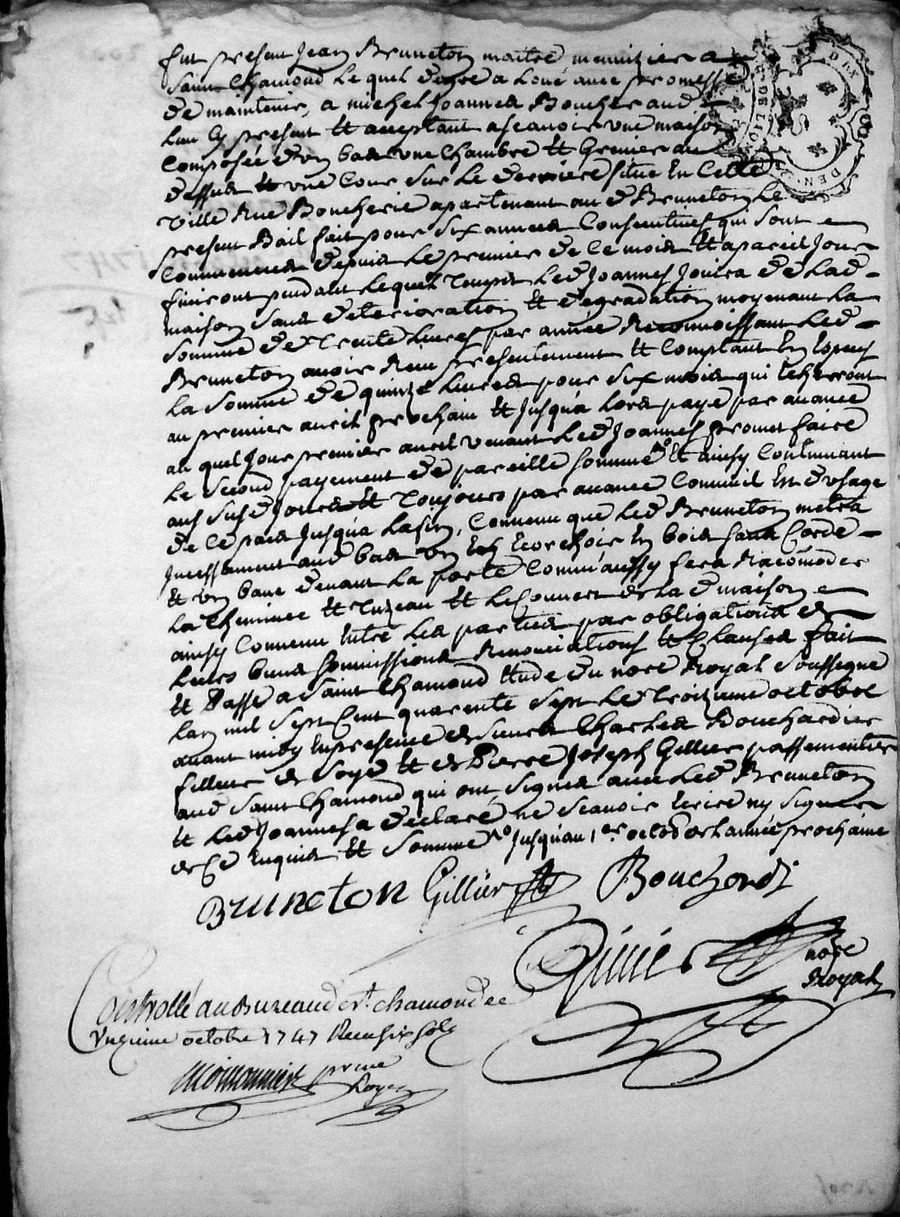 fut present Jean Bruneton maitre menuizier a
Saint Chamond Lequel degre a Loué avec promesse
de maintenir, a michel Joannes Boucher aud
Lieu cy present et acceptant ascavoir une maison
Composée d'un bas une Chambre et Grenier au
dessus et une Cour sur le derriere situé En Cette
Ville Rue Boucherie apartenant aud Bruneton Le
present Bail fait pour six années Consecutives qui sont
Commencées depuis Le premier de Ce mois et a pareil Jour
finiront pendant Lequel temps Led Joannes Jouira de Lad
maison sans deterioration et degradation moyenant La
Somme de trente Livres par année Reconnoissant Led
Bruneton avoir Reçu presentement et Comptant En Especes
La Somme de quinze Livres pour six mois qui Echerront
au premier avril prochain et Jusqua Lors payé par avance
au quel Jour premier avril venant Led Joannes promet faire
Le Second payement de pareille somme et ainsy Continuant
et toujours par avance Comme il Est d'usage
de Ce pais Jusqua Lafin, Convenu que Led Bruneton metra
Incessament aud bas un Ecorchoir En bois sans Corde
et un banc devant La porte Comm'aussy fera Racomoder
La Cheminée et et Le Couvert de Lad maison
ainsy Convenu Entre Les parties par obligations de
Leurs biens soumissions Renonciations et Clauses fait
et Passé a Saint Chamond Etude du nore Royal Soussigné
Lan mil Sept Cent quarente Sept Le treizieme octobre
avant midy En presence de sieurs Charles Bouchardier
filleur de Soye et de Pierre Joseph Gillier passementier
aud Saint Chamond qui ont signés avec Led Bruneton
et Led Joannes a declaré ne Scavoir Ecrire ny signer
de Ce Enquis et Sommé Jusquau 1er octobre Lannée prochaine
Bruneton Gillier Bouchardi
nore
Royal
Controllé au Bureau de St. Chamond ce
octobre 1747 Recu six sols